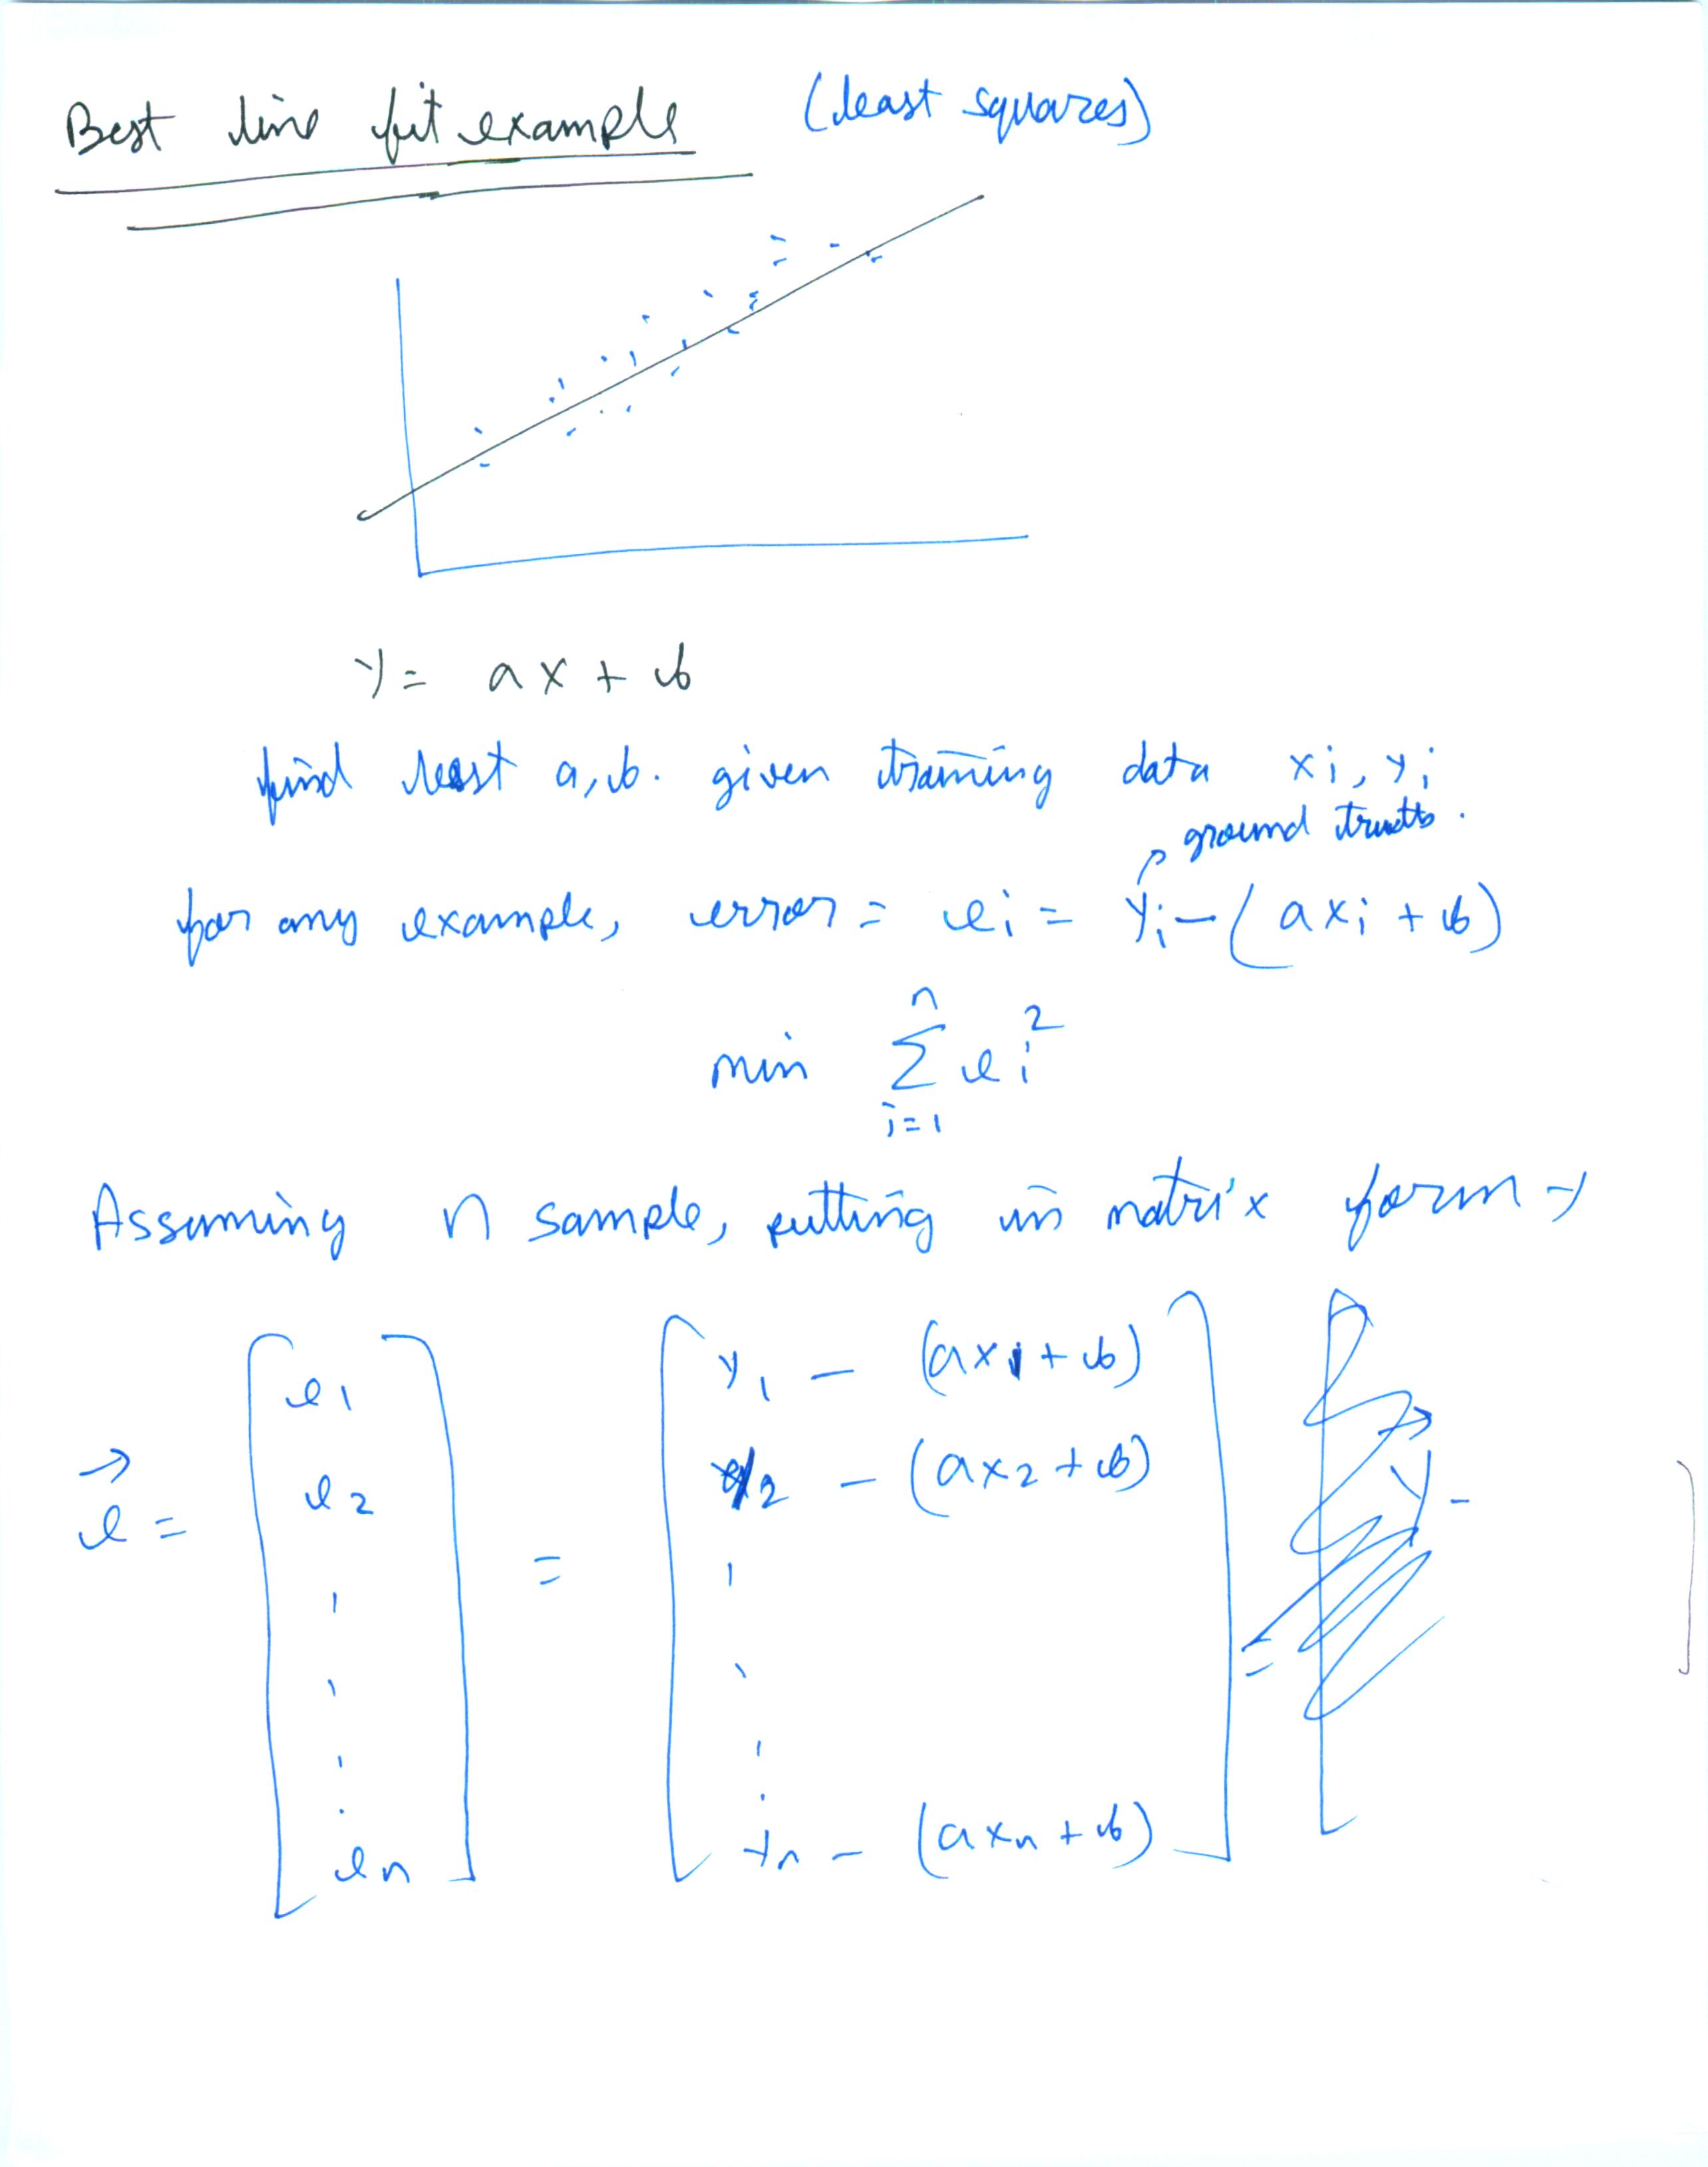 Best line fit example (least squares)
y = ax + b
find best a, b. given training data xi, yi
ground truth.
for any example, error = ei = yi - (axi + b)
min Σ ei²
n
i=1
Assuming n sample, putting in matrix form →
e = [e1 = [y1 - (ax1 + b) =
e2 y2 - (ax2 + b)
en] yn - (axn + b)]